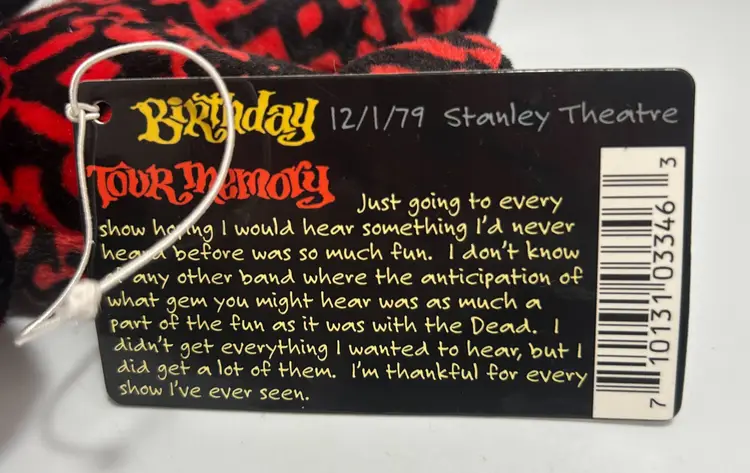 Birthday 12/1/79 Stanley Theatre
Tour Memory
Just going to every
show hoping I would hear something I'd never
heard before was so much fun. I don't know
of any other band where the anticipation of
what gem you might hear was as much a
part of the fun as it was with the Dead. I
didn't get everything I wanted to hear, but I
did get a lot of them. I'm thankful for every
show I've ever seen.
7 10131 03346 3